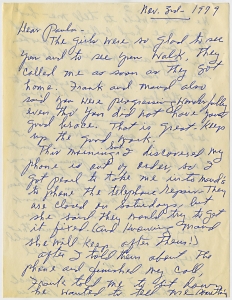 Nov. 3rd - 1979
Dear Paula -
The girls were so glad to see
you and to see you walk. They
called me as soon as they got
home. Frank and Maud also
said you were progressing wonderfully
even tho you did not have your
good brace. That is great. Keep
up the good work.
This morning I discovered my
phone is out of order, so I
got Pearl to take me into
to phone the telephone repair. They
are closed on Saturdays but
she said they would try to get
it fixed (and
she will keep after them!)
After I told them about the
phone and finished my call,
Frank told me to
he wanted to tell me